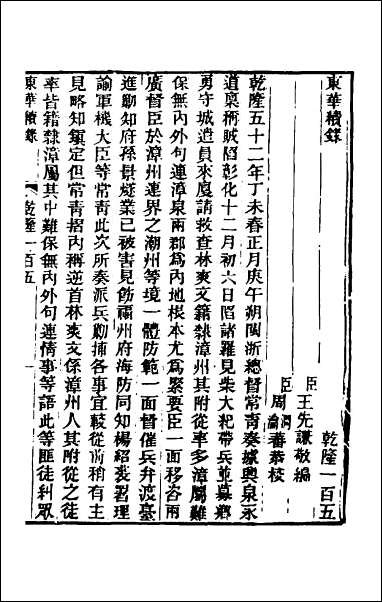 東華續錄
乾隆一百五
臣王先謙敬編
臣周潤蕃
瀹蕃恭校
乾隆五十二年丁未春正月庚午朔閩浙總督常青奏據興泉永
道稟稱賊陷彰化十二月初六日陷諸羅見柴大紀帶兵並募鄉
勇守城遣員來廈請救查林爽文籍隸漳州其附從率多漳屬難
保無內外句連漳泉兩郡爲內地根本尤爲緊要臣一面移咨兩
廣督臣於漳州連界之潮州等境一體防範一面督催兵弁渡臺
進勦知府孫景燧業已被害見飭福州府海防同知楊紹裘署理
諭軍機大臣等常青此次所奏派兵勦捕各事宜較從前稍有主
見略知鎮定但常青摺內稱逆首林爽文係漳州人其附從之徒
率皆籍隸漳屬其中難保無內外句連情事等語此等匪徒糾眾
東華續錄
乾隆一百五